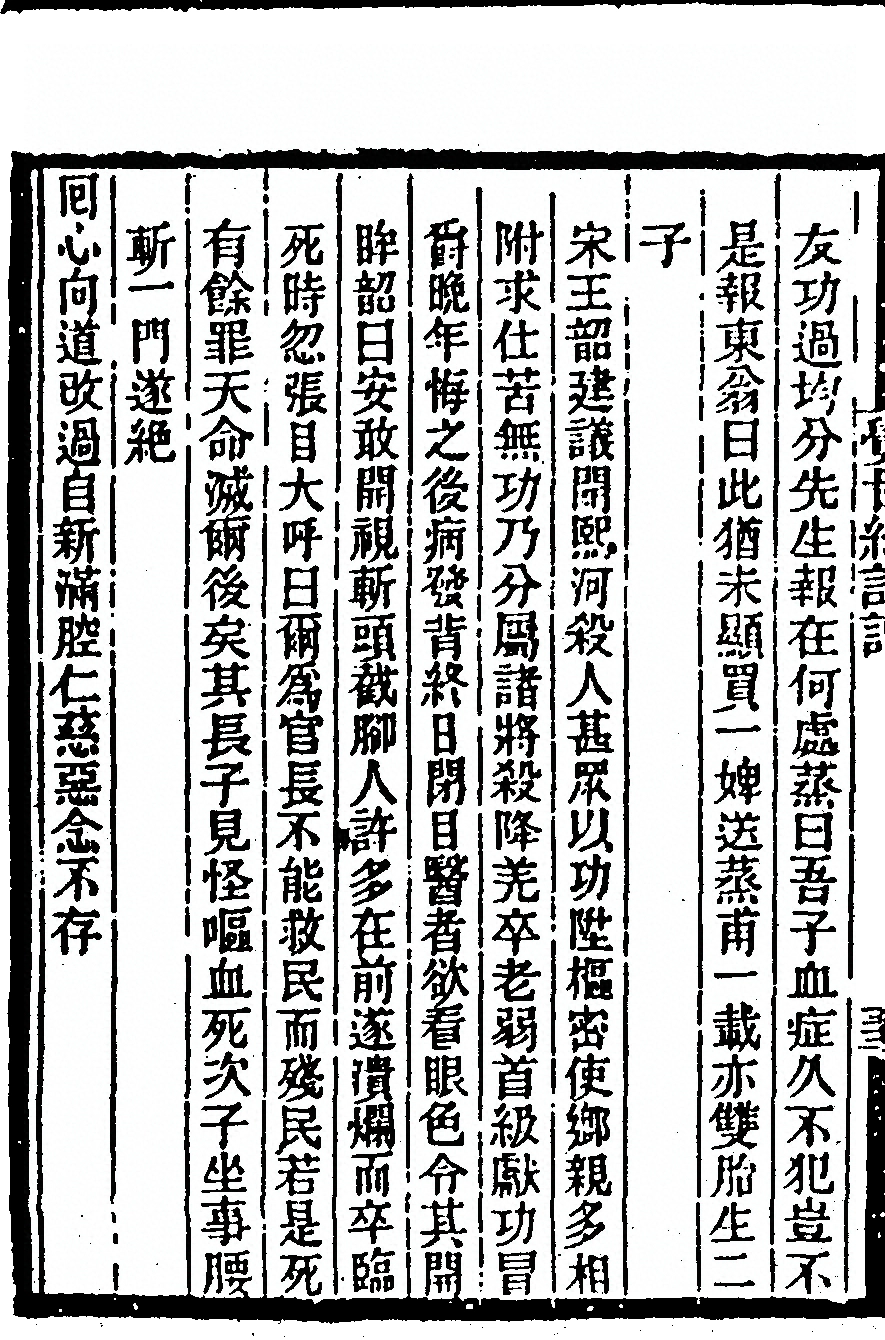 友功過均分先生報在何處蒸曰吾子血症久不犯豈不
是報東翁曰此猶未顯買一婢送蒸甫一載亦雙胎生二
子
宋王韶建議開熙河殺人甚眾以功陞樞密使鄉親多相
附求仕苦無功乃分屬諸將殺降羌卒老弱首級獻功冒
爵晚年悔之後病發背終日閉目醫者欲看眼色令其開
眸韶曰安敢開視斬頭截腳人許多在前遂潰爛而卒臨
死時忽張目大呼曰爾為官長不能救民而殘民若是死
有餘罪天命滅爾後矣其長子見怪嘔血死次子坐事腰
斬一門遂絕
囘心向道改過自新滿腔仁慈惡念不存